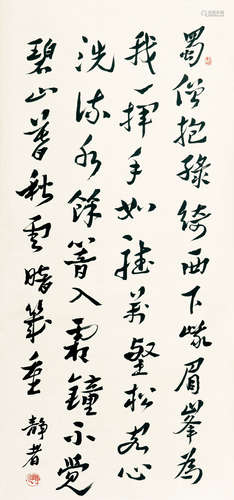 蜀僧抱綠綺西下峨眉峯為
我一揮手如聽萬壑松客心
洗流水餘響入霜鐘不覺
碧山暮秋雲暗幾重
靜者